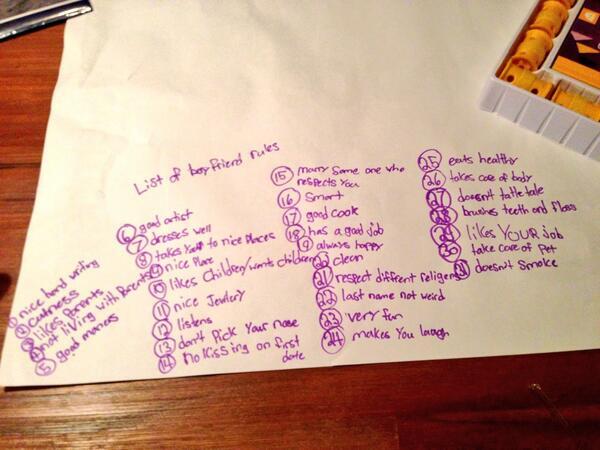 List of boyfriend rules
① nice hand writing
② cutness
③ likes parents
④ not living with parents
⑤ good maners
⑥ good artist
⑦ dresses well
⑧ takes you to nice places
⑨ nice place
⑩ likes children/wants children
⑪ nice Jewlery
⑫ listens
⑬ don't pick your nose
⑭ no kissing on first
date
⑮ marry some one who
respects you
⑯ smart
⑰ good cook
⑱ has a good job
⑲ always happy
⑳ clean
㉑ respect diffrent religens
㉒ last name not weird
㉓ very fun
㉔ makes you laugh
㉕ eats healthy
㉖ takes care of body
㉗ doesn't tattle tale
㉘ brushes teeth and floss
㉙ likes YOUR job
㉚ take care of pet
㉛ doesn't smoke